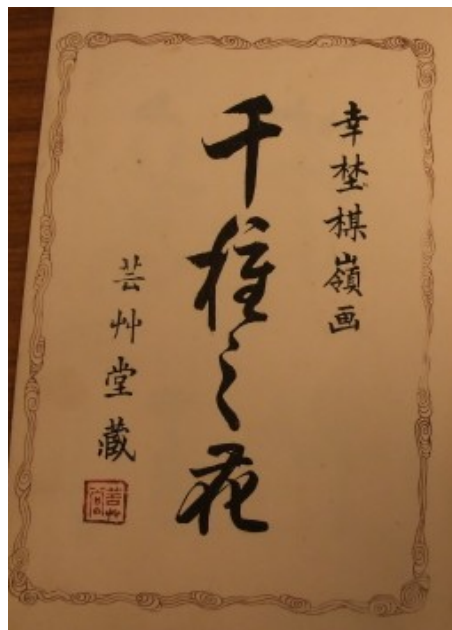 幸埜楳嶺画
千種之花
芸艸堂蔵